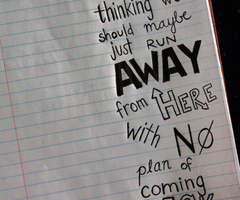 thinking
should maybe
just RUN
AWAY
from HERE
with NØ
plan of
coming